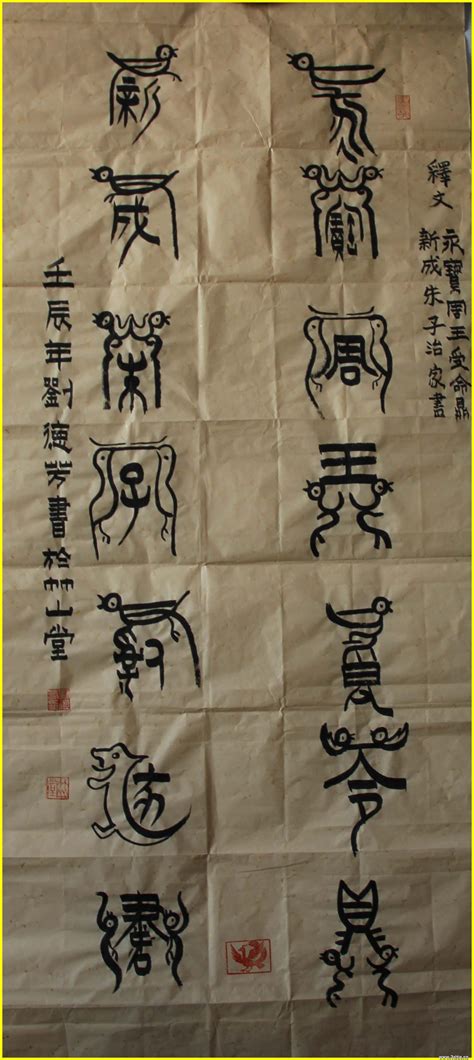 釋文
永寶周王受命鼎
新成朱子治家書
永寶周王受命鼎
新成朱子治家書
壬辰年劉德芳書於竹山堂